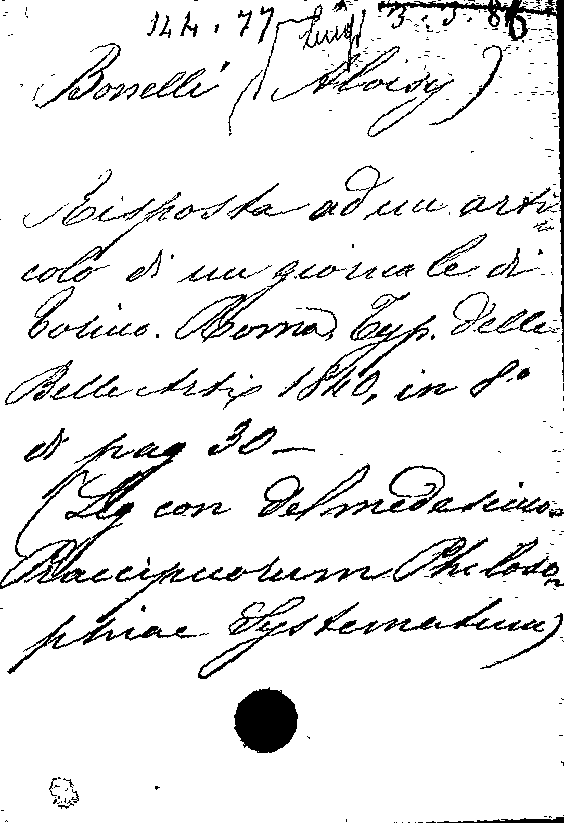 144.77 Luigi 3.5.86
Bonelli (Aloisy)
Risposta ad un arti-
colo di un giornale di
Torino. Roma, Typ. delle
Belle Arti, 1840, in 8.°
di pag 30 —
(Leg con del medesimo
Praecipuorum Philoso-
phiae Systematum)